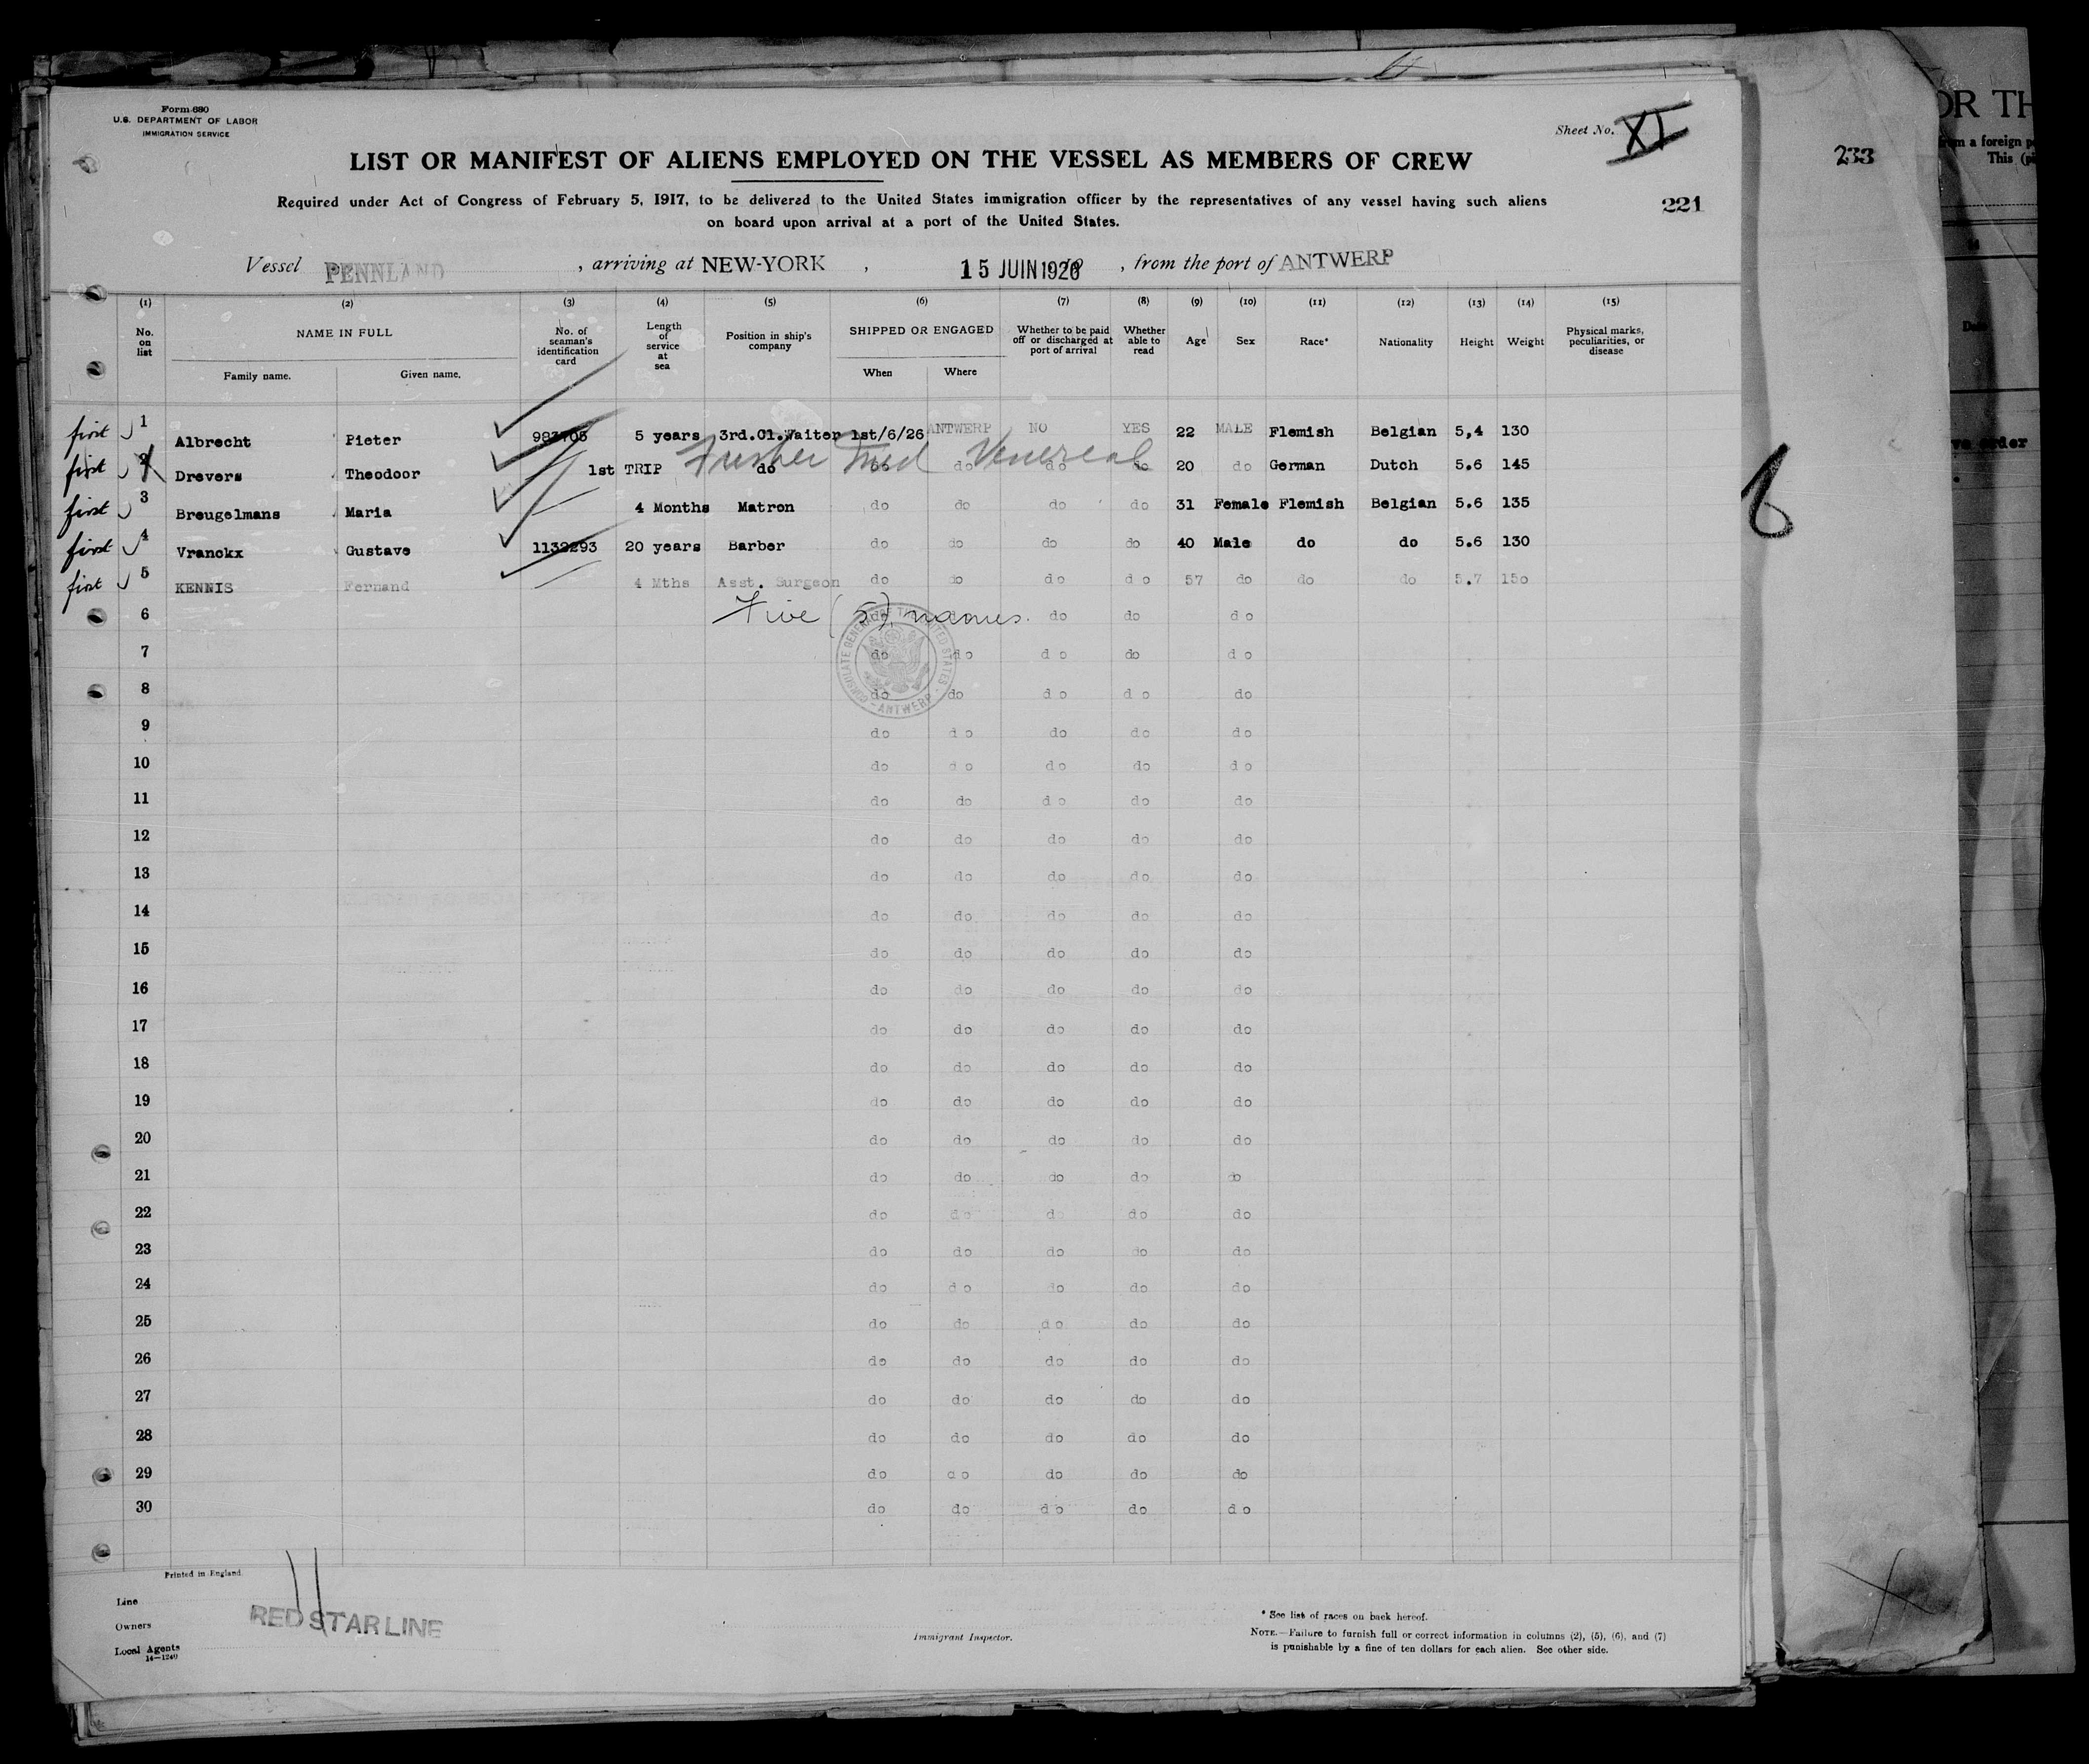 Form 680
U.S. DEPARTMENT OF LABOR
IMMIGRATION SERVICE
Sheet No. XI
LIST OR MANIFEST OF ALIENS EMPLOYED ON THE VESSEL AS MEMBERS OF CREW
233
Required under Act of Congress of February 5, 1917, to be delivered to the United States immigration officer by the representatives of any vessel having such aliens
221
on board upon arrival at a port of the United States.
Vessel PENNLAND , arriving at NEW-YORK , 15 JUIN 1926 , from the port of ANTWERP
(1) (2) (3) (4) (5) (6) (7) (8) (9) (10) (11) (12) (13) (14) (15)
No. on list NAME IN FULL Family name. Given name. No. of seaman's identification card Length of service at sea Position in ship's company SHIPPED OR ENGAGED When Where Whether to be paid off or discharged at port of arrival Whether able to read Age Sex Race* Nationality Height Weight Physical marks, peculiarities, or disease
first 1 Albrecht Pieter 5 years 3rd.Cl.Waiter 1st/6/26 ANTWERP NO YES 22 MALE Flemish Belgian 5,4 130
first 2 Drevers Theodoor 1st TRIP do do do do do 20 do German Dutch 5.6 145
Venereal
first 3 Breugelmans Maria 4 Months Matron do do do do 31 Female Flemish Belgian 5.6 135
first 4 Vranckx Gustave 1132293 20 years Barber do do do do 40 Male do do 5.6 130
first 5 KENNIS Fernand 4 Mths Asst. Surgeon do do do do 57 do do do 5.7 150
Five (5) names.
6 do do do do
CONSULATE GENERAL OF THE UNITED STATES - ANTWERP -
7 do do do do do
8 do do do do do
9 do do do do do
10 do do do do do
11 do do do do do
12 do do do do do
13 do do do do do
14 do do do do do
15 do do do do do
16 do do do do do
17 do do do do do
18 do do do do do
19 do do do do do
20 do do do do do
21 do do do do do
22 do do do do do
23 do do do do do
24 do do do do do
25 do do do do do
26 do do do do do
27 do do do do do
28 do do do do do
29 do do do do do
30 do do do do do
Printed in England.
Line
Owners RED STAR LINE
Local Agents
14—1240
Immigrant Inspector.
* See list of races on back hereof.
NOTE.—Failure to furnish full or correct information in columns (2), (5), (6), and (7)
is punishable by a fine of ten dollars for each alien. See other side.